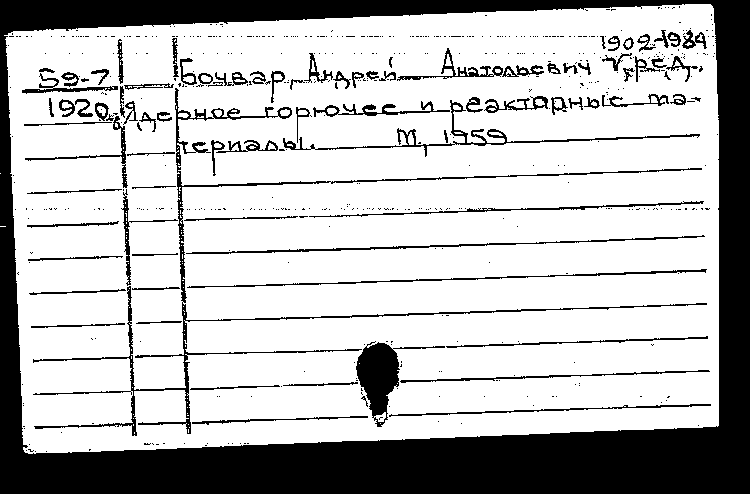 1902-1984
59-7 Бочвар, Андрей Анатольевич ред.
1920 Ядерное горючее и реакторные ма-
териалы. М, 1959